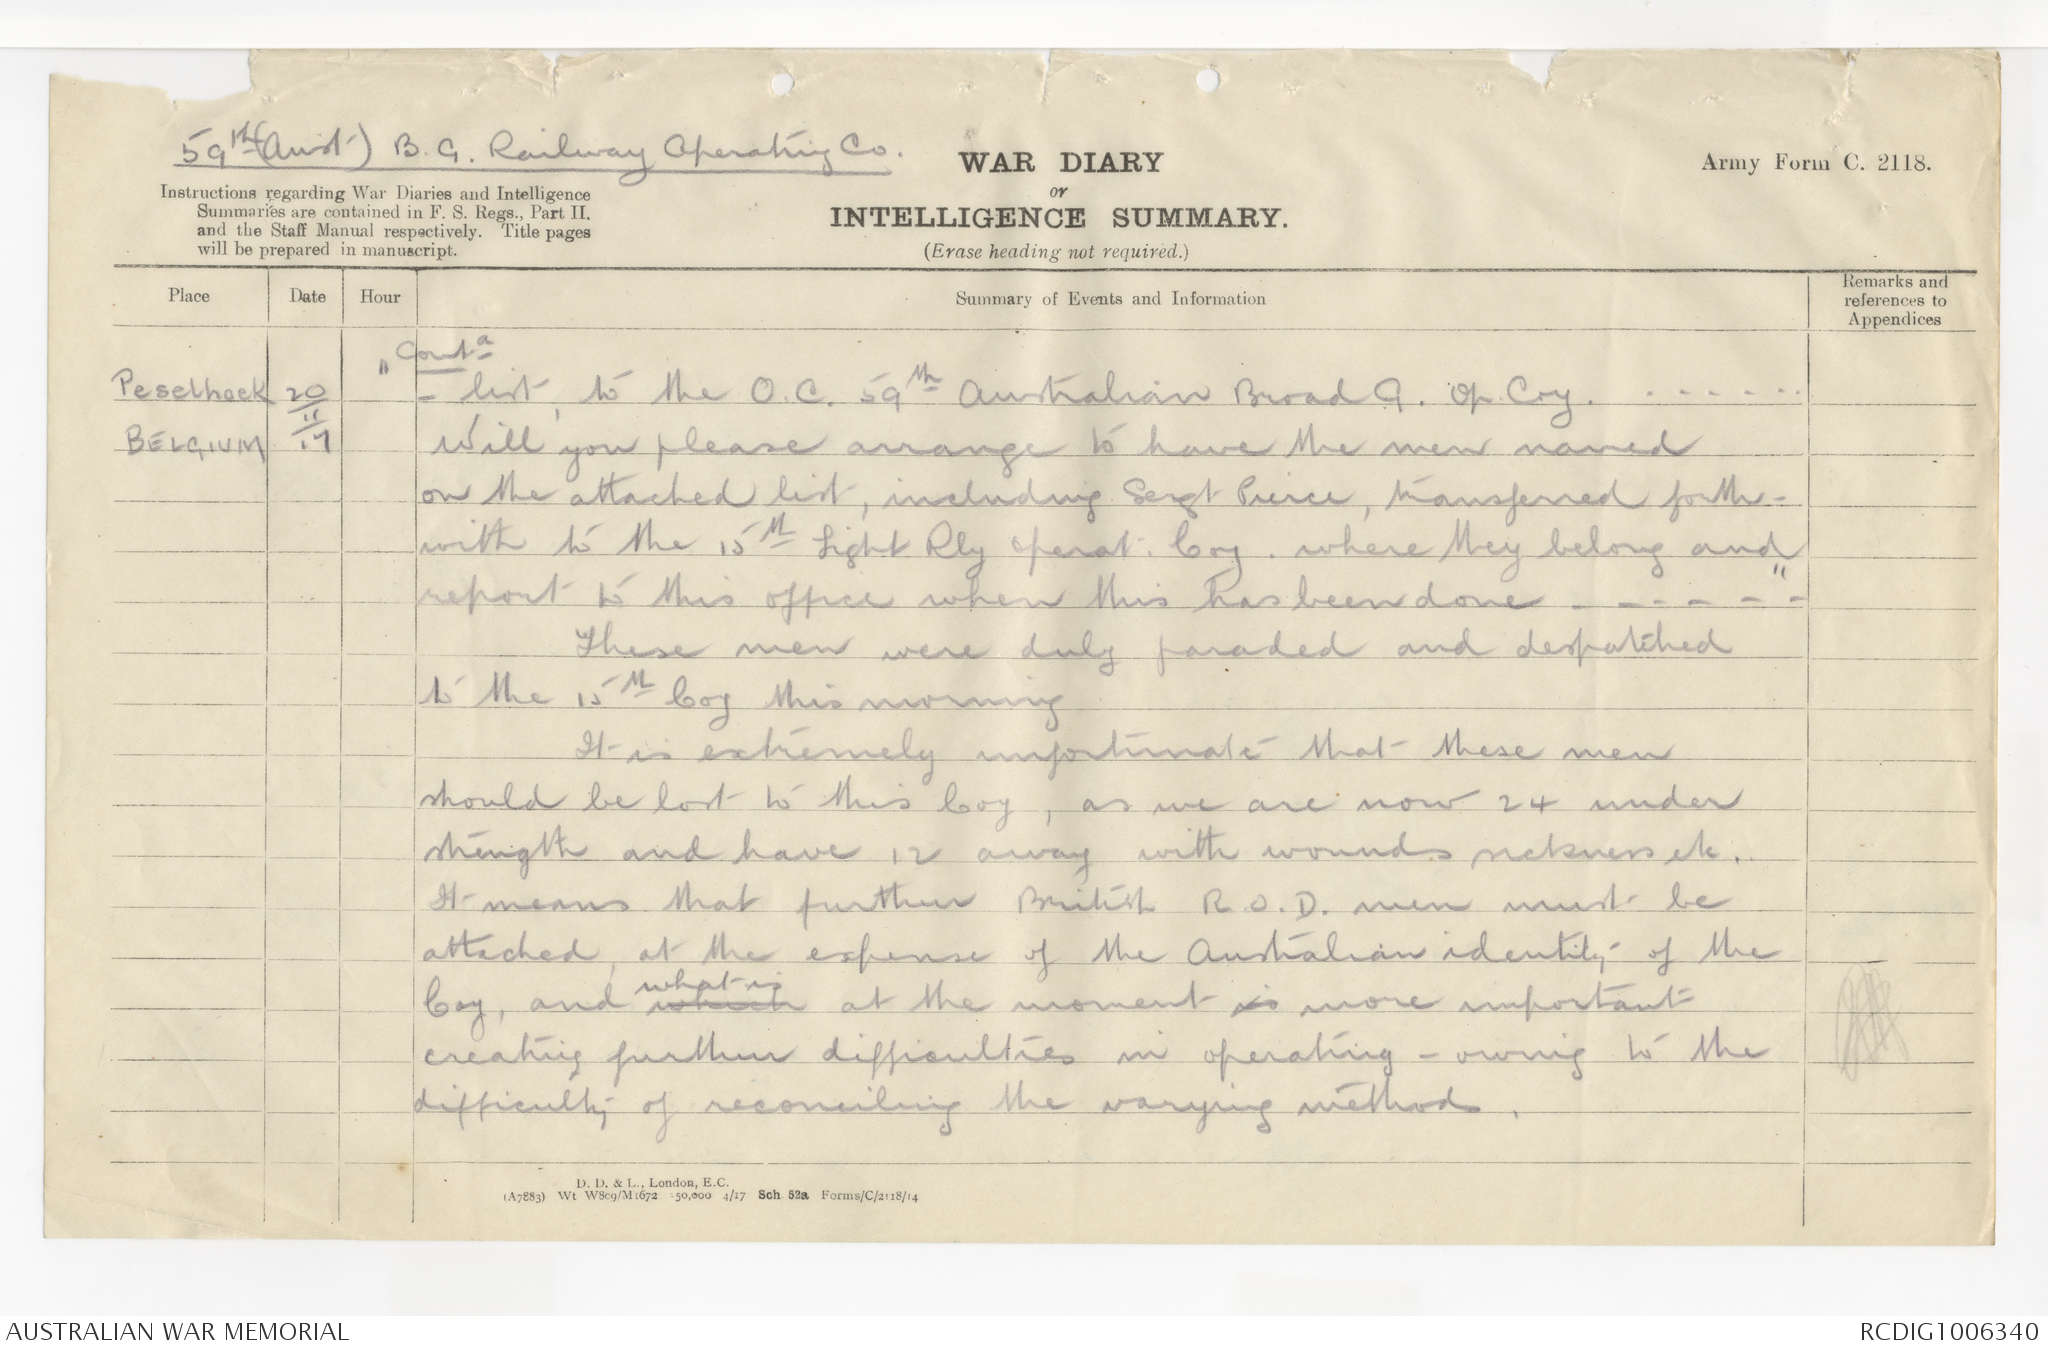 59th (Aust) B.G. Railway Operating Co.
WAR DIARY
or
INTELLIGENCE SUMMARY.
(Erase heading not required.)
Army Form C. 2118.
Instructions regarding War Diaries and Intelligence
Summaries are contained in F. S. Regs., Part II.
and the Staff Manual respectively. Title pages
will be prepared in manuscript.
Place
Date
Hour
Summary of Events and Information
Remarks and
references to
Appendices
" Contd
Peselhoek 20/11/17
BELGIUM
- list, to the O.C. 59th Australian Broad G. Op. Coy. - - - - - -
Will you please arrange to have the men named
on the attached list, including Sergt Pierce, transferred forth-
with to the 15th Light Rly Operat. Coy. where they belong and
report to this office when this has been done - - - - - - "
These men were duly paraded and despatched
to the 15th Coy this morning
It is extremely unfortunate that these men
should be lost to this Coy, as we are now 24 under
strength and have 12 away with wounds sickness etc.
It means that further British R.O.D. men must be
attached, at the expense of the Australian identity of the
Coy, and which what is at the moment is more important
creating further difficulties in operating - owing to the
difficulty of reconciling the varying methods.
D. D. & L., London, E.C.
(A7883) Wt W809/M1672 350,000 4/17 Sch 52a Forms/C/2118/14
AUSTRALIAN WAR MEMORIAL
RCDIG1006340